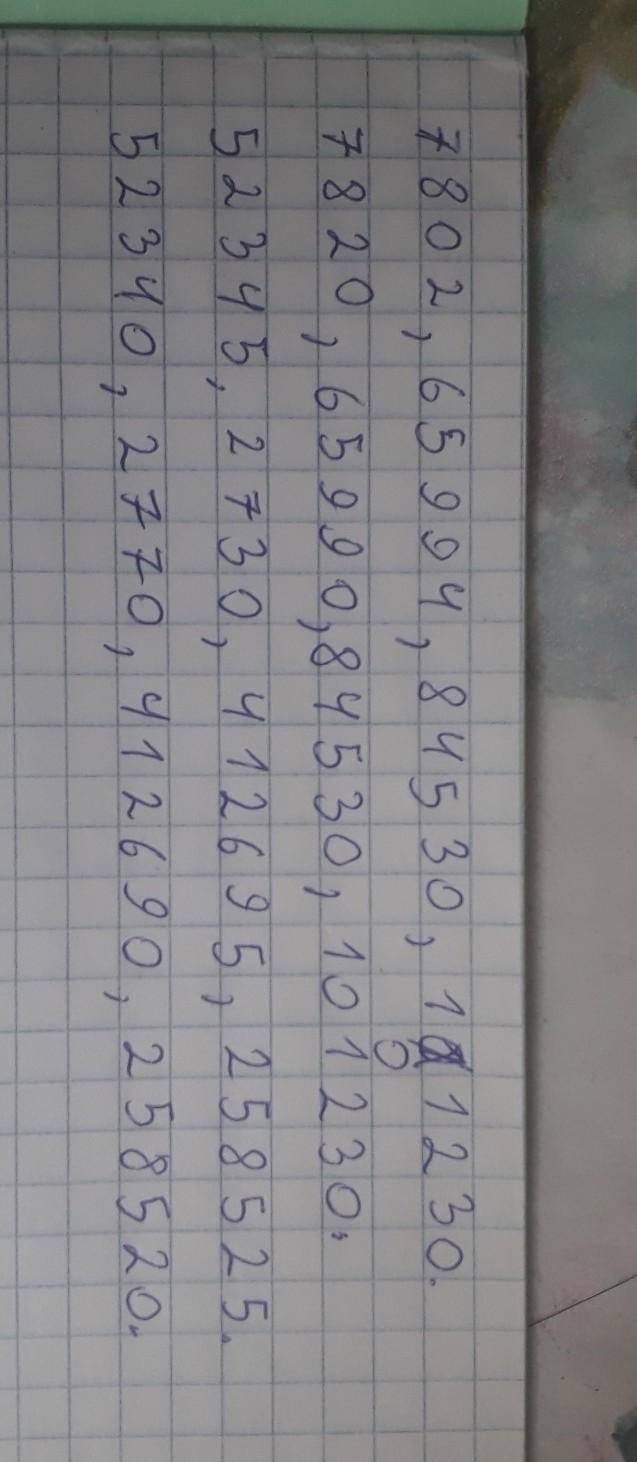 7802, 65994, 84530, 101230.
7820, 65990, 84530, 101230.
52345, 2730, 412695, 258525.
52340, 2770, 412690, 258520.